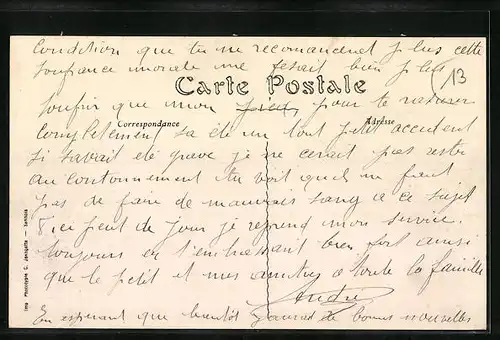 condition que tu ne recomancenet plus cette
soufrance morale me fesait bien plus
13
Carte Postale
soufrir que mon pied, pour te rasurer
Correspondance
Adresse
complètement sa été un tout petit accident
si savait été grave je ne cerait pas resté
au contonnement tu voit quel ne faut
pas de faire de mauvais sang a ce sujet
d'ici peut de jour je reprend mon service.
toujours en t'embrassant bien fort ainsi
que le petit et mes amitiés a toute la famille
André
En esperant que bientôt j'aurai de bonnes nouvelles
Imp. Phototypie C. - Senlis